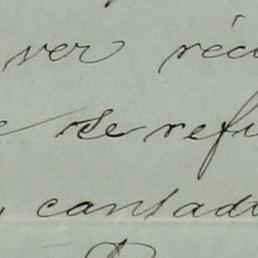 ver réc
se refu
cansad